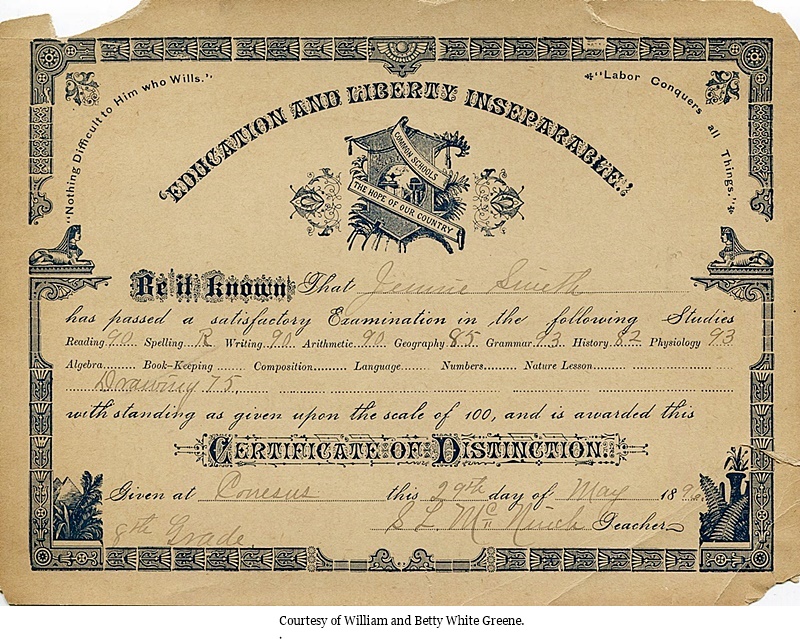 "Nothing Difficult to Him who Wills."
"Labor Conquers all Things."
"EDUCATION AND LIBERTY INSEPARABLE."
COMMON SCHOOLS
THE HOPE OF OUR COUNTRY
Be it Known That Jennie Smith
has passed a satisfactory Examination in the following Studies
Reading 90 Spelling R Writing 90 Arithmetic 90 Geography 85 Grammar 93 History 82 Physiology 93
Algebra Book-Keeping Composition Language Numbers Nature Lesson
Drawing 75
with standing as given upon the scale of 100, and is awarded this
CERTIFICATE OF DISTINCTION.
Given at Conesus this 29th day of May 189
S L Mc Teacher
8th Grade
Courtesy of William and Betty White Greene.